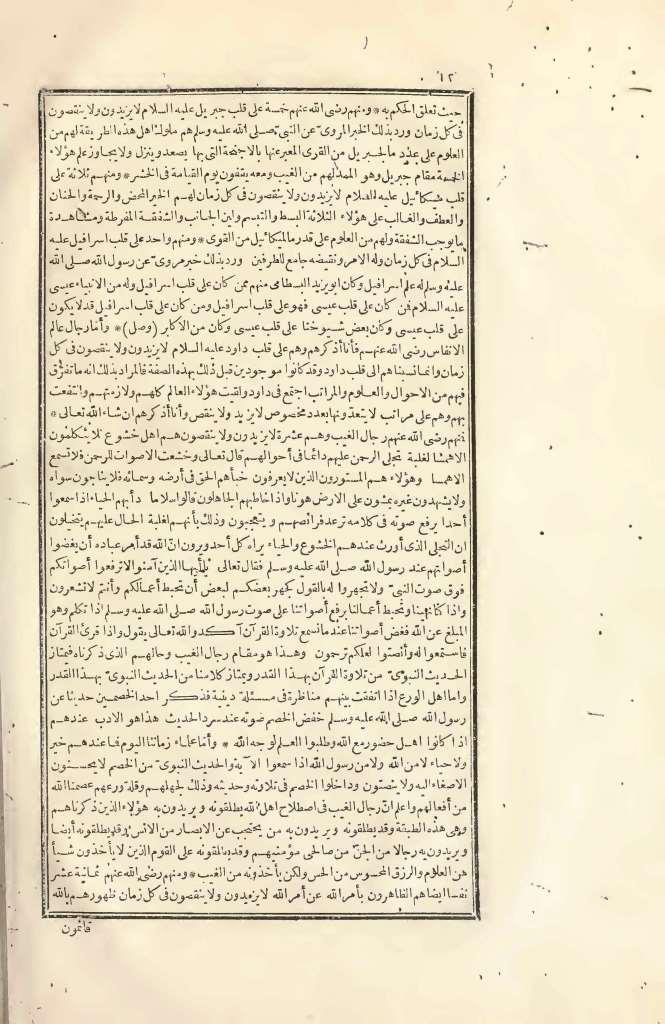 ١٢
حيث تعلق الحكم به * ومنهم رضى الله عنهم خمسة على قلب جبريل عليه السلام لا يزيدون ولا ينقصون
فى كل زمان ورد بذلك الخبر المروى عن النبى صلى الله عليه وسلم هم ملوك اهل هذه الطريقة لهم من
العلوم على عدد ما لجبريل من القوى المعبر عنها بالاجنحة التى بها يصعد وينزل ولا يجاوز علم هؤلاء
الخمسة مقام جبريل وهو الممد لهم من الغيب ومعه يقفون يوم القيامة فى الحشر * ومنهم ثلاثة على
قلب ميكائيل عليه السلام لا يزيدون ولا ينقصون فى كل زمان لهم الخير المحض والرحمة والحنان
والعطف والغالب على هؤلاء الثلاثة البسط والتبسم ولين الجانب والشفقة المفرطة ومشاهدة
ما يوجب الشفقة ولهم من العلوم على قدر ما لميكائيل من القوى * ومنهم واحد على قلب اسرافيل عليه
السلام فى كل زمان وله الامر ونقيضه جامع للطرفين ورد بذلك خبر مروى عن رسول الله صلى الله
عليه وسلم له علم اسرافيل وكان ابو يزيد البسطامى منهم ممن كان على قلب اسرافيل وله من الانبياء عيسى
عليه السلام فمن كان على قلب عيسى فهو على قلب اسرافيل ومن كان على قلب اسرافيل قد لا يكون
على قلب عيسى وكان بعض شيوخنا على قلب عيسى وكان من الاكابر (وصل) * وأما رجال عالم
الانفاس رضى الله عنهم فأنا أذكرهم وهم على قلب داود عليه السلام لا يزيدون ولا ينقصون فى كل
زمان وانما نسبناهم الى قلب داود وقد كانوا موجودين قبل ذلك بهذه الصفة فالمراد بذلك انه ما تفرق
فيهم من الاحوال والعلوم والمراتب اجتمع فى داود ولقيت هؤلاء العالم كلهم ولازمتهم وانتفعت
بهم وهم على مراتب لا يتعدونها بعدد مخصوص لا يزيد ولا ينقص وأنا أذكرهم ان شاء الله تعالى *
فمنهم رضى الله عنهم رجال الغيب وهم عشرة لا يزيدون ولا ينقصون هم اهل خشوع فلا يتكلمون
الا همسا لغلبة تجلى الرحمن عليهم دائما فى أحوالهم قال تعالى وخشعت الاصوات للرحمن فلا تسمع
الا همسا وهؤلاء هم المستورون الذين لا يعرفون خبأهم الحق فى أرضه وسمائه فلا يناجون سواه
ولا يشهدون غيره يمشون على الارض هونا واذا خاطبهم الجاهلون قالوا سلاما دأبهم الحياء اذا سمعوا
أحدا يرفع صوته فى كلامه ترعد فرائصهم ويتعجبون وذلك بأنهم لغلبة الحال عليهم يتخيلون
ان التجلى الذى أورث عندهم الخشوع والحياء يراه كل أحد ويرون ان الله قد أمر عباده أن يغضوا
أصواتهم عند رسول الله صلى الله عليه وسلم فقال تعالى يا أيها الذين آمنوا لا ترفعوا أصواتكم
فوق صوت النبى ولا تجهروا له بالقول كجهر بعضكم لبعض أن تحبط أعمالكم وأنتم لا تشعرون
واذا كنا نهينا وتحبط أعمالنا برفع أصواتنا على صوت رسول الله صلى الله عليه وسلم اذا تكلم وهو
المبلغ عن الله فغض أصواتنا عند ما نسمع تلاوة القرآن آكد والله تعالى يقول واذا قرئ القرآن
فاستمعوا له وأنصتوا لعلكم ترحمون وهذا هو مقام رجال الغيب وحالهم الذى ذكرناه فيمتاز
الحديث النبوى من تلاوة القرآن بهذا القدر ويمتاز كلامنا من الحديث النبوى بهذا القدر
واما اهل الورع اذا اتفقت بينهم مناظرة فى مسئلة دينية فذكر احد الخصمين حديثا عن
رسول الله صلى الله عليه وسلم خفض الخصم صوته عند سرد الحديث هذا هو الادب عندهم
اذا كانوا اهل حضور مع الله وطلبوا العلم لوجه الله * وأما علماء زماننا اليوم فما عندهم خير
ولا حياء لا من الله ولا من رسول الله اذا سمعوا الآية والحديث النبوى من الخصم لا يحسنون
الاصغاء اليه ولا ينصتون وداخلوا الخصم فى تلاوته وحديثه وذلك لجهلهم وقلة ورعهم عصمنا الله
من أفعالهم واعلم ان رجال الغيب فى اصطلاح اهل الله يطلقونه ويريدون به هؤلاء الذين ذكرناهم
وهى هذه الطبقة وقد يطلقونه ويريدون به من يحتجب عن الابصار من الانس وقد يطلقونه أيضا
ويريدون به رجالا من الجن من صالحى مؤمنيهم وقد يطلقونه على القوم الذين لا يأخذون شيأ
من العلوم والرزق المحسوس من الحس ولكن يأخذونه من الغيب * ومنهم رضى الله عنهم ثمانية عشر
نفسا ايضا هم الظاهرون بأمر الله عن أمر الله لا يزيدون ولا ينقصون فى كل زمان ظهورهم بالله
قائمون